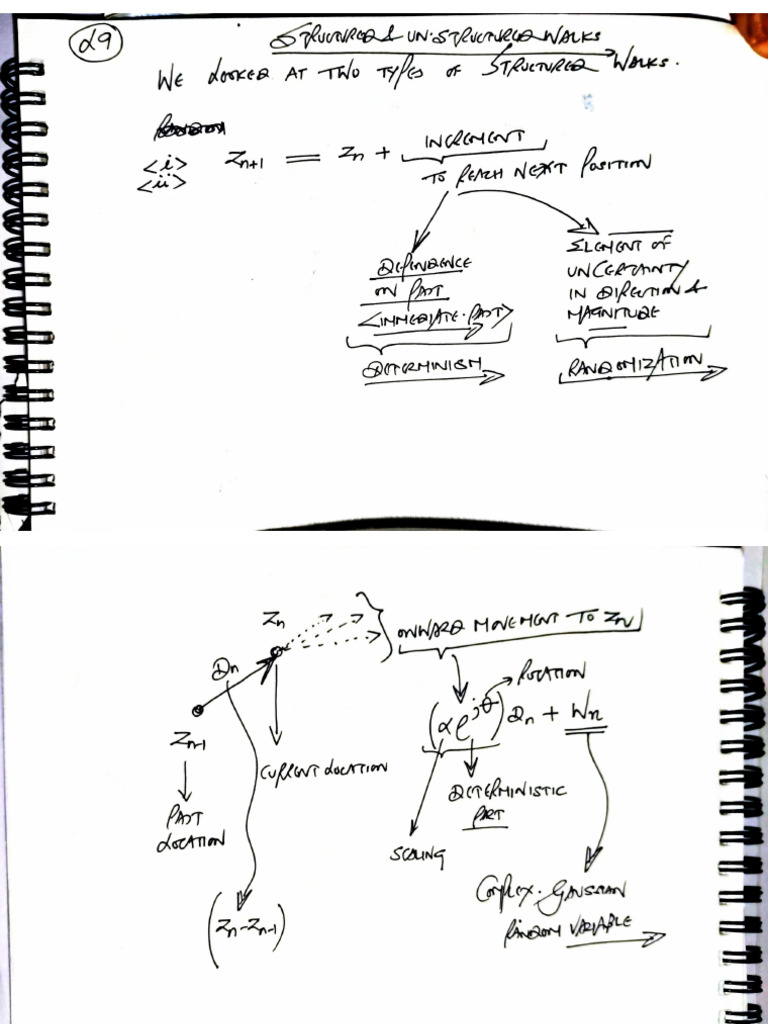 29
STRUCTURED & UN-STRUCTURED WALKS
WE LOOKED AT TWO TYPES OF STRUCTURED WALKS.
<i> Zn+1 = Zn + INCREMENT
<ii> TO REACH NEXT POSITION
DEPENDENCE
ON PAST
<IMMEDIATE-PAST>
DETERMINISM
ELEMENT OF
UNCERTAINTY
IN DIRECTION &
MAGNITUDE
RANDOMIZATION
Zn
ONWARD MOVEMENT TO ZN
Dn
Zn-1
ROTATION
(αe^jθ) Dn + Wn
CURRENT LOCATION
PAST
LOCATION
DETERMINISTIC
PART
SCALING
(Zn-Zn-1)
COMPLEX-GAUSSIAN
RANDOM VARIABLE